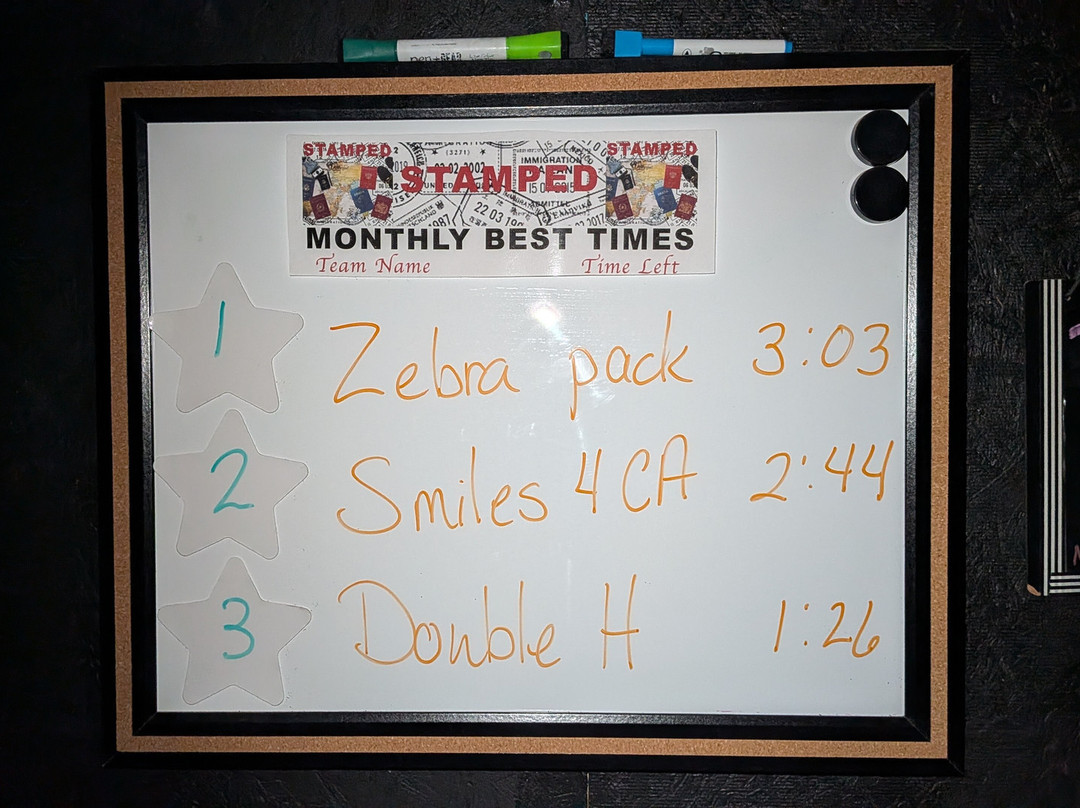 STAMPED
STAMPED
STAMPED
IMMIGRATION
MONTHLY BEST TIMES
Team Name Time Left
1 Zebra pack 3:03
2 Smiles 4 CA 2:44
3 Double H 1:26